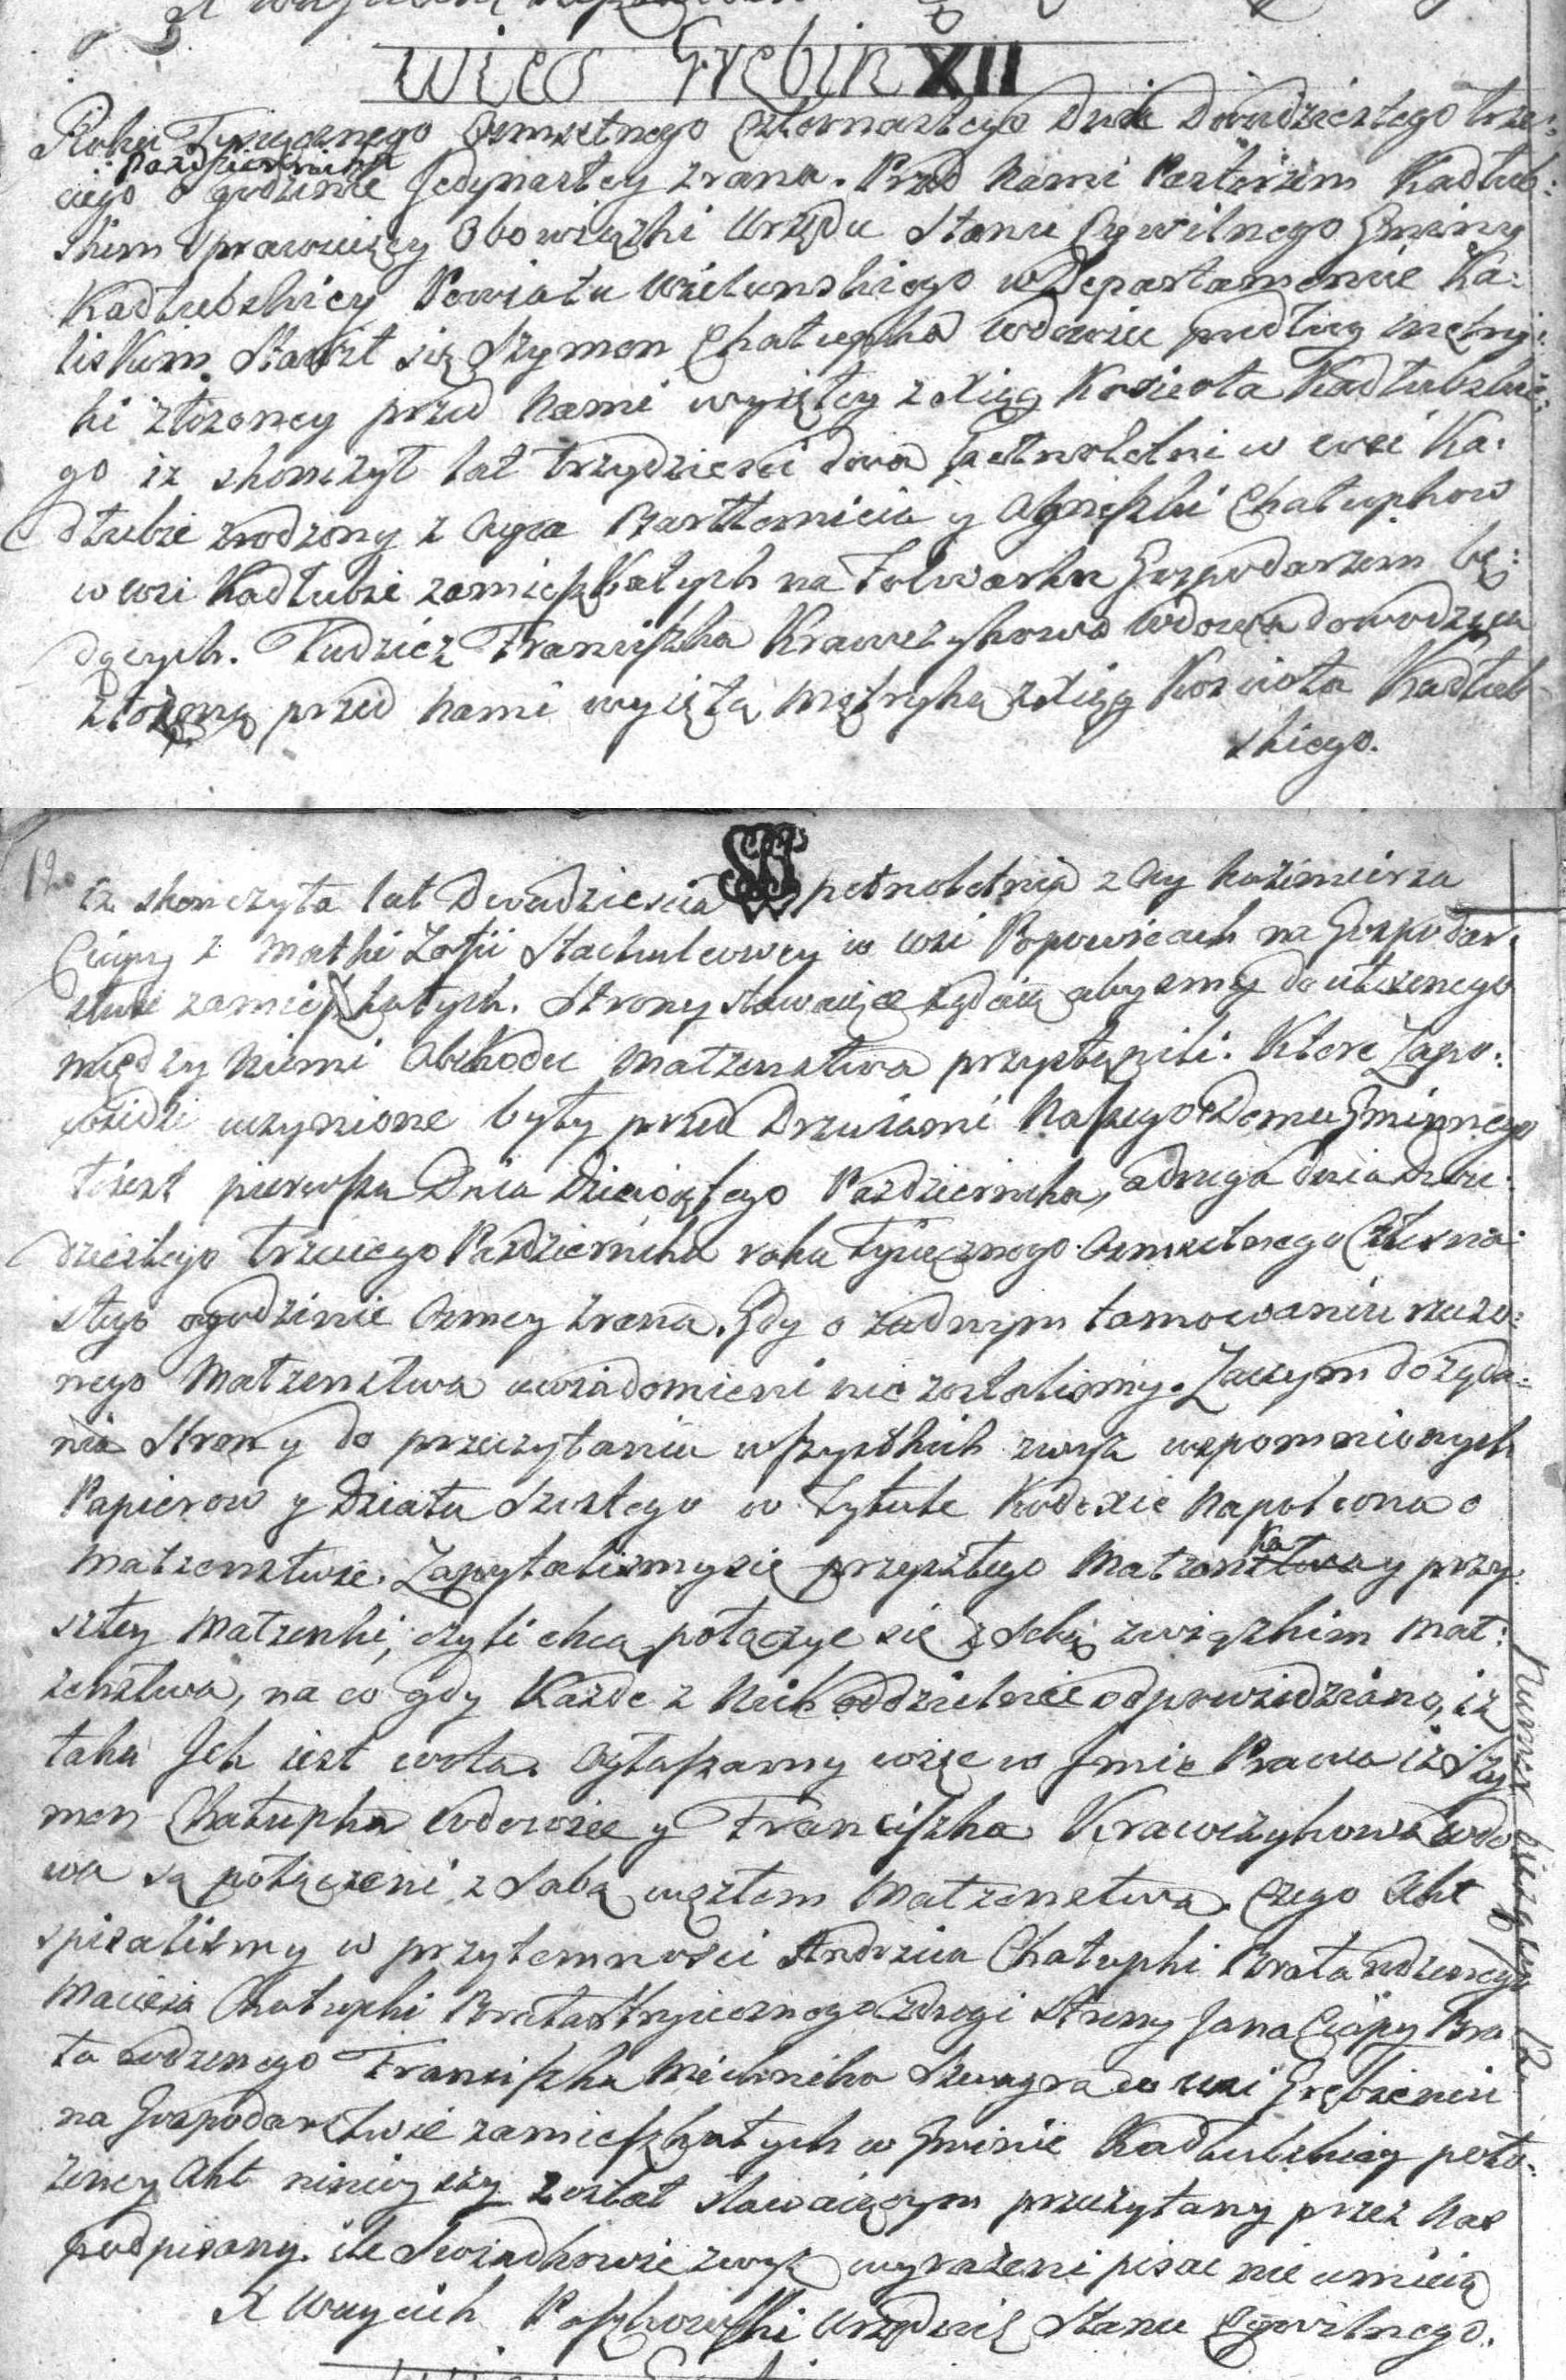 wies Grębin XII
Roku Tysiącznego Osmsetnego Czternastego Dnia Dwudziestego trze:
Pazdziernika
ciego o godzinie Jedynastey zrana. Przed Nami Kadłub:
skim Sprawuiący Obowiązki Urzędu Stanu Cywilnego Gminy
Kadłubskiey Powiatu Wielunskiego w Departamencie Ka:
liskim. Stawił się Szymon Chałupka Wdowiec podług metry:
ki złozoney przed Nami wyiętey z Xiąg Koscioła Kadłubskie:
go iz skonczył lat trzydziesci dwa pełnoletni w wsi Ka:
dłubie zrodzony z Oyca Bartłomieia y Agnieszki Chałupkow
w wsi Kadłubie zamieszkałych na Folwarku Gospodarzem bę:
dących. Tudziez Franciszka Krawczykowa Wdowa dowodząca
złożoną przed Nami wyiętą Mętryką z Xiąg Koscioła Kadłub
skiego.
12.
iz skonczyła lat Dwadziescia pełnoletnia z Oycy Kazimierza
Ciapy z Matki Zofii Stachulcowey w wsi Popowicach na Gospodar:
stwie zamieszkałych. Strony stawaiące żądaią abysmy do ułożonego
między Niemi Obchodu Małzenstwa przystąpili. Ktore Zapo:
wiedzi uczynione były przed Drzwiami Naszego Domu Gminnego
toiest pierwsza Dnia Dziewiątego Pazdziernika, a druga dnia Dwu:
dziestego trzeciego Pazdziernika roku Tysiącznego Osmsetnego Czterna:
stego o godzinie Osmey zrana. Gdy o zadnym tamowaniu rzeczo:
nego Małzenstwa uwiadomieni nie zostalismy. Zaczym do żąda:
nia Strony do przeczytaniu wszystkich zwysz wspomnionych
Papierow y Działu Szostego w Tytule Kodexie Napoleona o
Małzenstwie. Zapytalismy się przyszłego Małzonka y przy:
szłey Małzenki, czyli chcą połączyc się z Sobą związkim Mał:
zenstwa, na co gdy Każde z Nich oddzielnie odpowiedziano, iz
taka Jch iest wola. Ogłaszamy więc w Jmie Prawa iż Szy
mon Chałupka Wdowiec y Franciszka Krawczykowa Wdo
wa są połączeni z Sobą węzłem Małzenstwa. Czego Akt
spisalismy w przytomnosci Andrzeia Chałupki Brata rodzonego
Macieia Chałupki Brata Stryiecznego z drogi Strony Jana Ciapy Bra
ta rodzonego Franciszka Michnika Szwagra w wsi Grębieniu
na Gospodarstwie zamieszkałych w Gminie Kadłubskiey poło:
zoney Akt ninieyszy został stawaiącym przeczytany przez Nas
podpisany. ile Swiadkowie zwysz wyrażeni pisac nie umieią
X Woyciech Urzędnik Stanu Cywilnego.
Numer bieżący 12